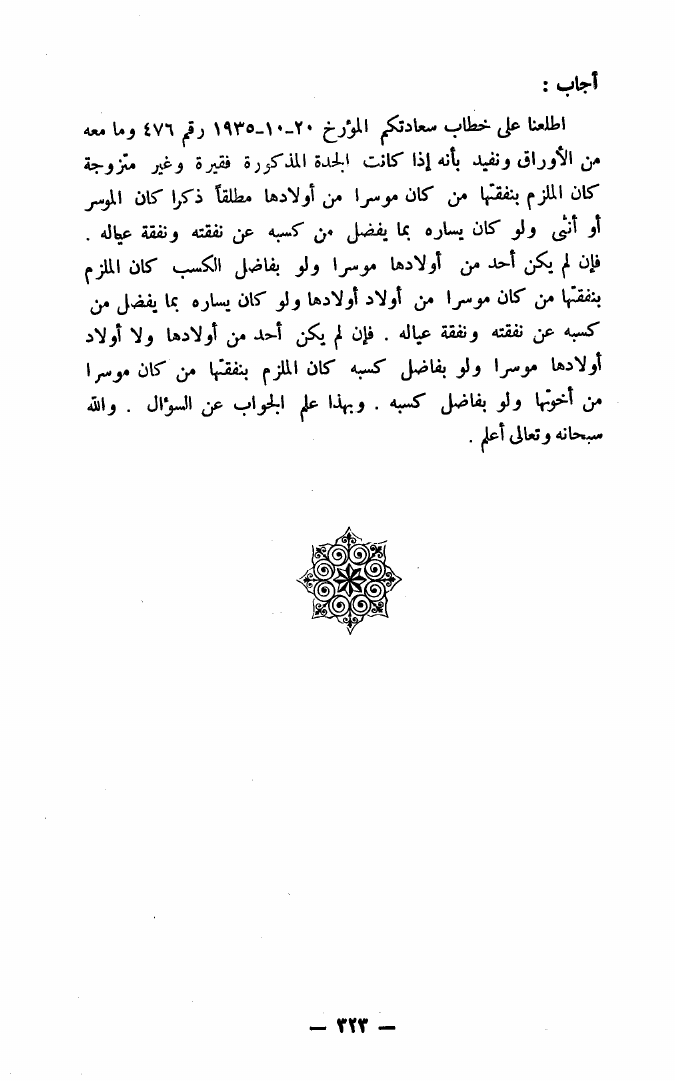 أجاب :
اطلعنا على خطاب سعادتكم المؤرخ ٢٠-١٠-١٩٣٥ رقم ٤٧٦ وما معه
من الأوراق ونفيد بأنه إذا كانت الجدة المذكورة فقيرة وغير متزوجة
كان الملزم بنفقتها من كان موسرا من أولادها مطلقاً ذكرا كان الموسر
أو أنثى ولو كان يساره بما يفضل من كسبه عن نفقته ونفقة عياله .
فإن لم يكن أحد من أولادها موسرا ولو بفاضل الكسب كان الملزم
بنفقتها من كان موسرا من أولاد أولادها ولو كان يساره بما يفضل من
كسبه عن نفقته ونفقة عياله . فإن لم يكن أحد من أولادها ولا أولاد
أولادها موسرا ولو بفاضل كسبه كان الملزم بنفقتها من كان موسرا
من أخوتها ولو بفاضل كسبه . وبهذا علم الجواب عن السؤال . والله
سبحانه وتعالى أعلم .
— ٣٢٣ —